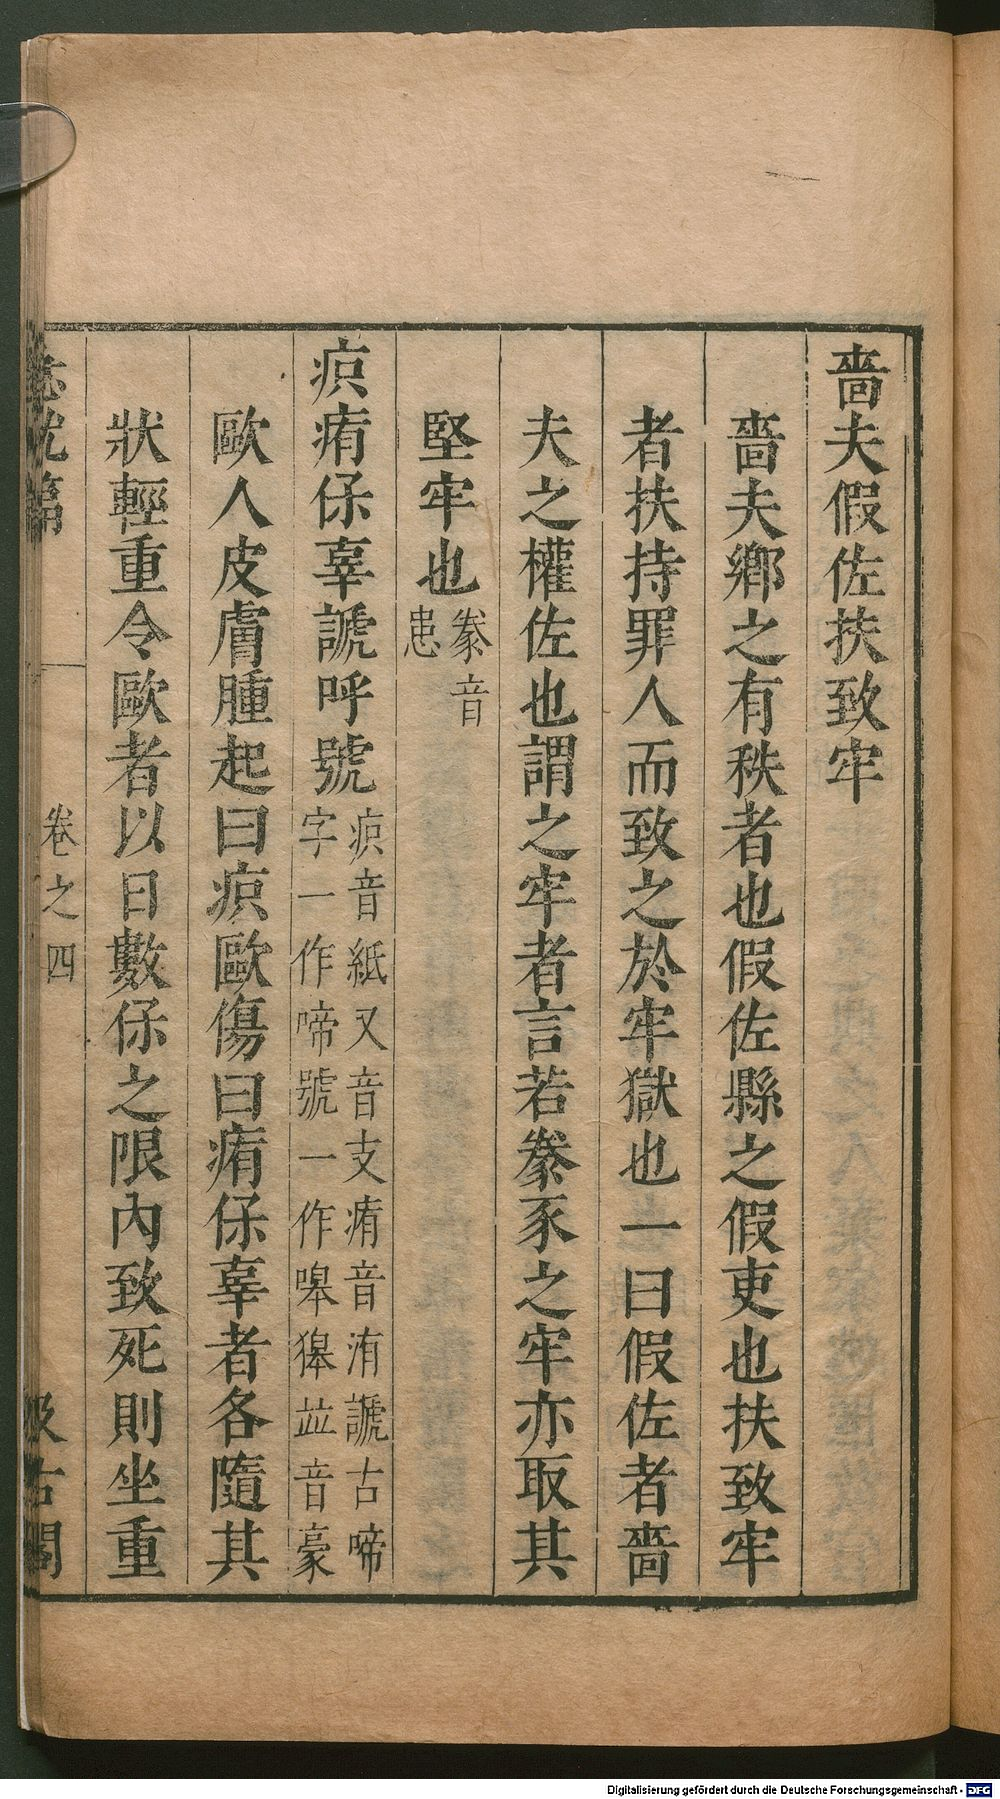 嗇夫假佐扶致牢
嗇夫鄉之有秩者也假佐縣之假吏也扶致牢
者扶持罪人而致之於牢獄也一曰假佐者嗇
夫之權佐也謂之牢者言若豢豕之牢亦取其
堅牢也豢音患
疻痏保辜謕呼號疻音紙又音支痏音洧謕古啼字一作啼號一作嘷獋並音豪
歐人皮膚腫起曰疻歐傷曰痏保辜者各隨其
狀輕重令歐者以日數保之限內致死則坐重
急就篇 卷之四 汲古閣
Digitalisierung gefördert durch die Deutsche Forschungsgemeinschaft - DFG